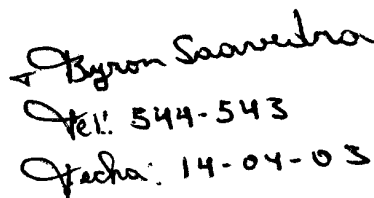 Byron Saavedra
Tel: 544-543
Fecha: 14-04-03